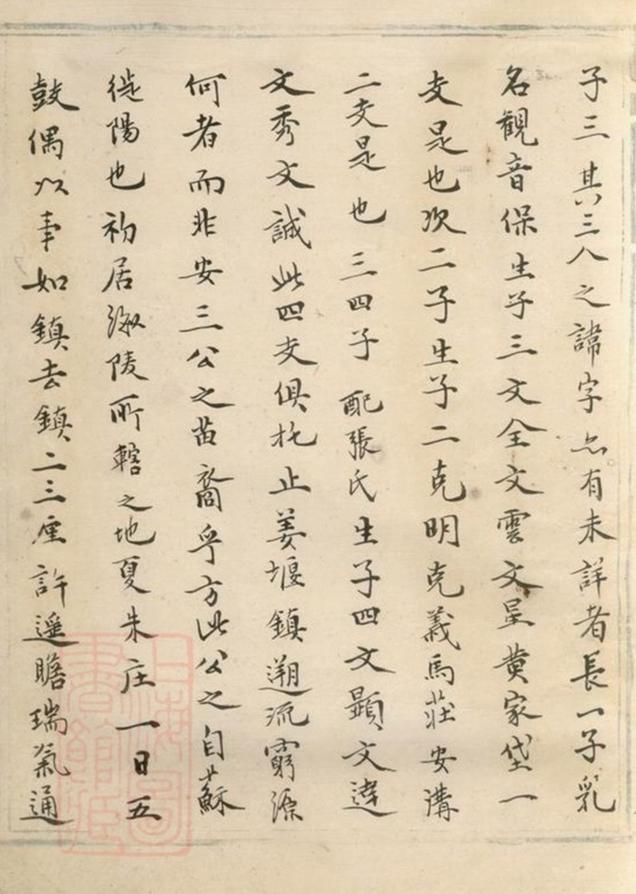 子三其三人之諱字亦有未詳者長一子乳
名観音保生子三文全文雲文呈黄家垈一
支是也次二子生子二克明克義馬莊安溝
二支是也三四子配張氏生子四文顕文達
文秀文誠此四支俱托止姜堰鎮遡流窮源
何者而非安三公之苗裔乎方此公之自蘇
徙陽也初居海陵所轄之地夏朱庄一日五
鼓偶以事如鎮去鎮二三里許遥瞻瑞氣通